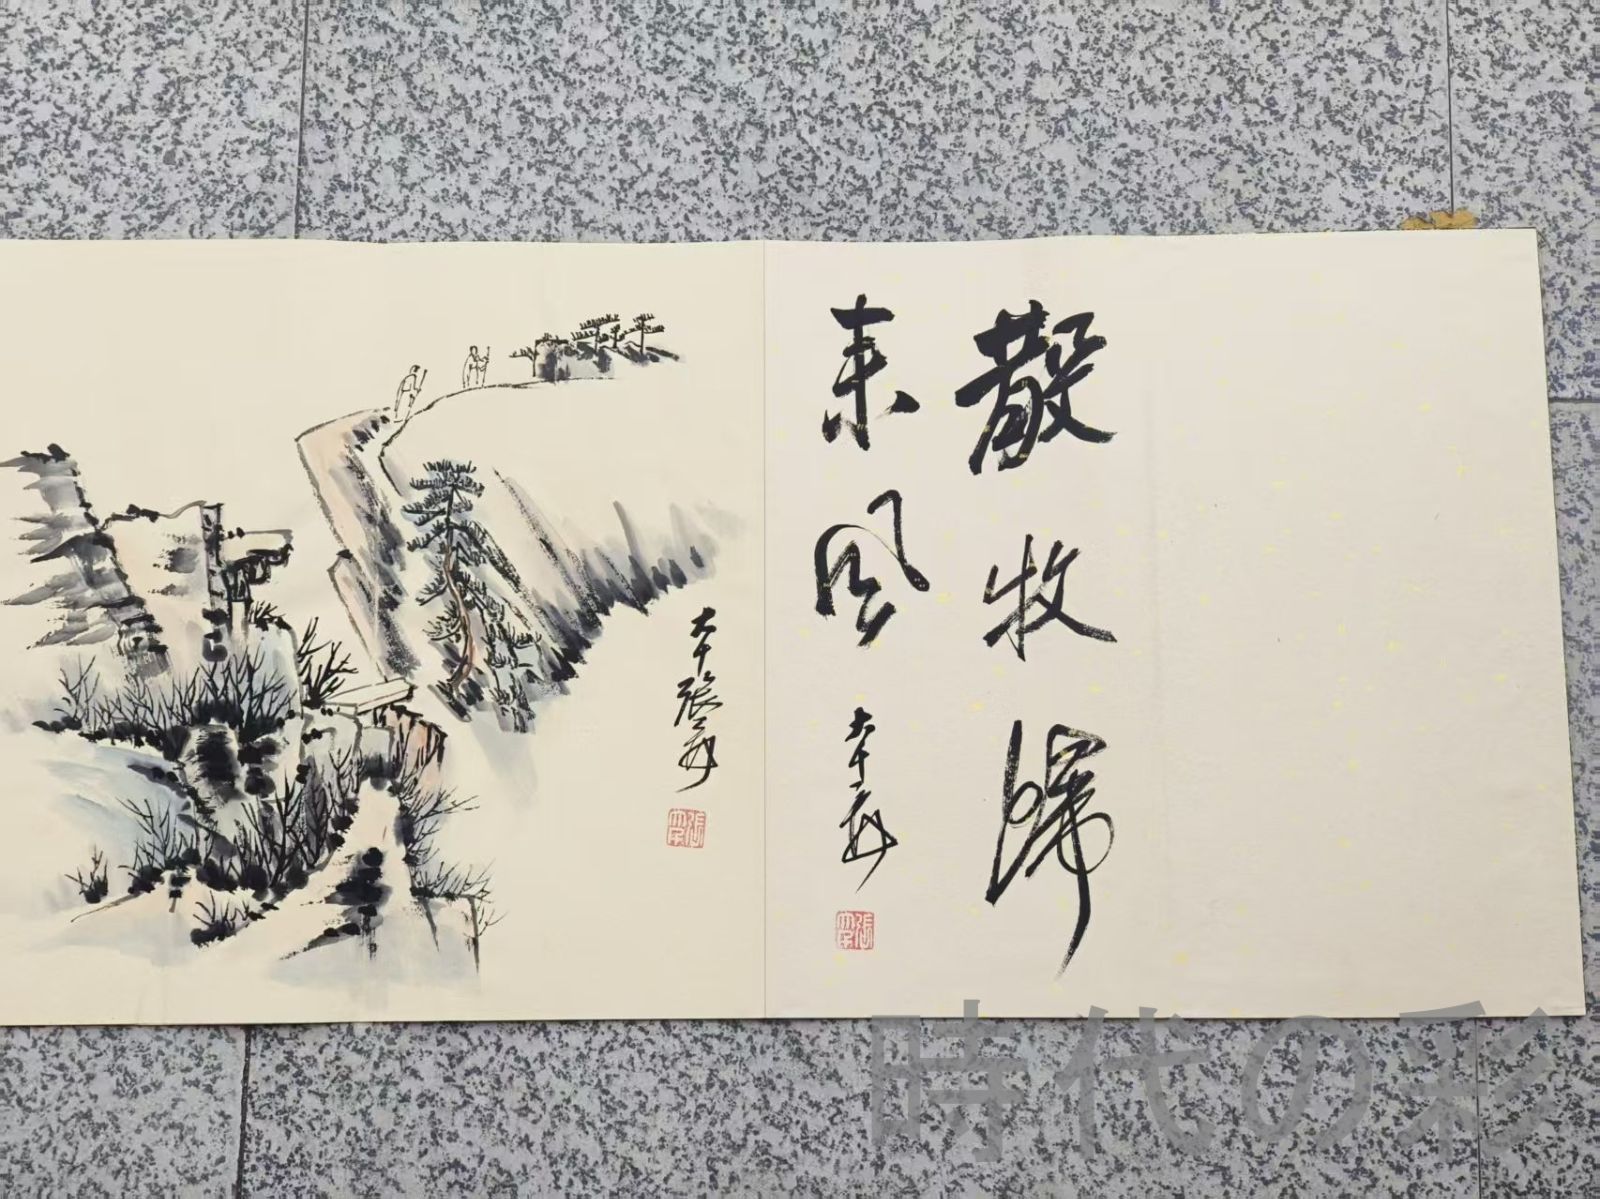 散牧歸
来風
大千
大千張爰
時代の彩